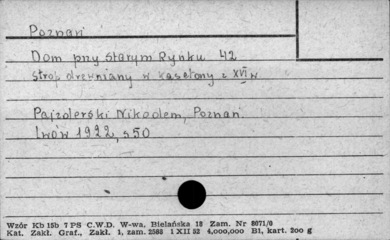 Poznań
Dom przy Starym Rynku 42
strop drewniany w kasetony z XVI w
Pajzderski Nikodem, Poznań
Lwów 1922, s 50
Wzór Kb 15b 7 PS C.W.D. W-wa, Bielańska 18 Zam. Nr 8071/0
Kat. Zakł. Graf., Zakł. 1, zam. 2568 1 XII 52 4,000,000 B1, kart. 200 g